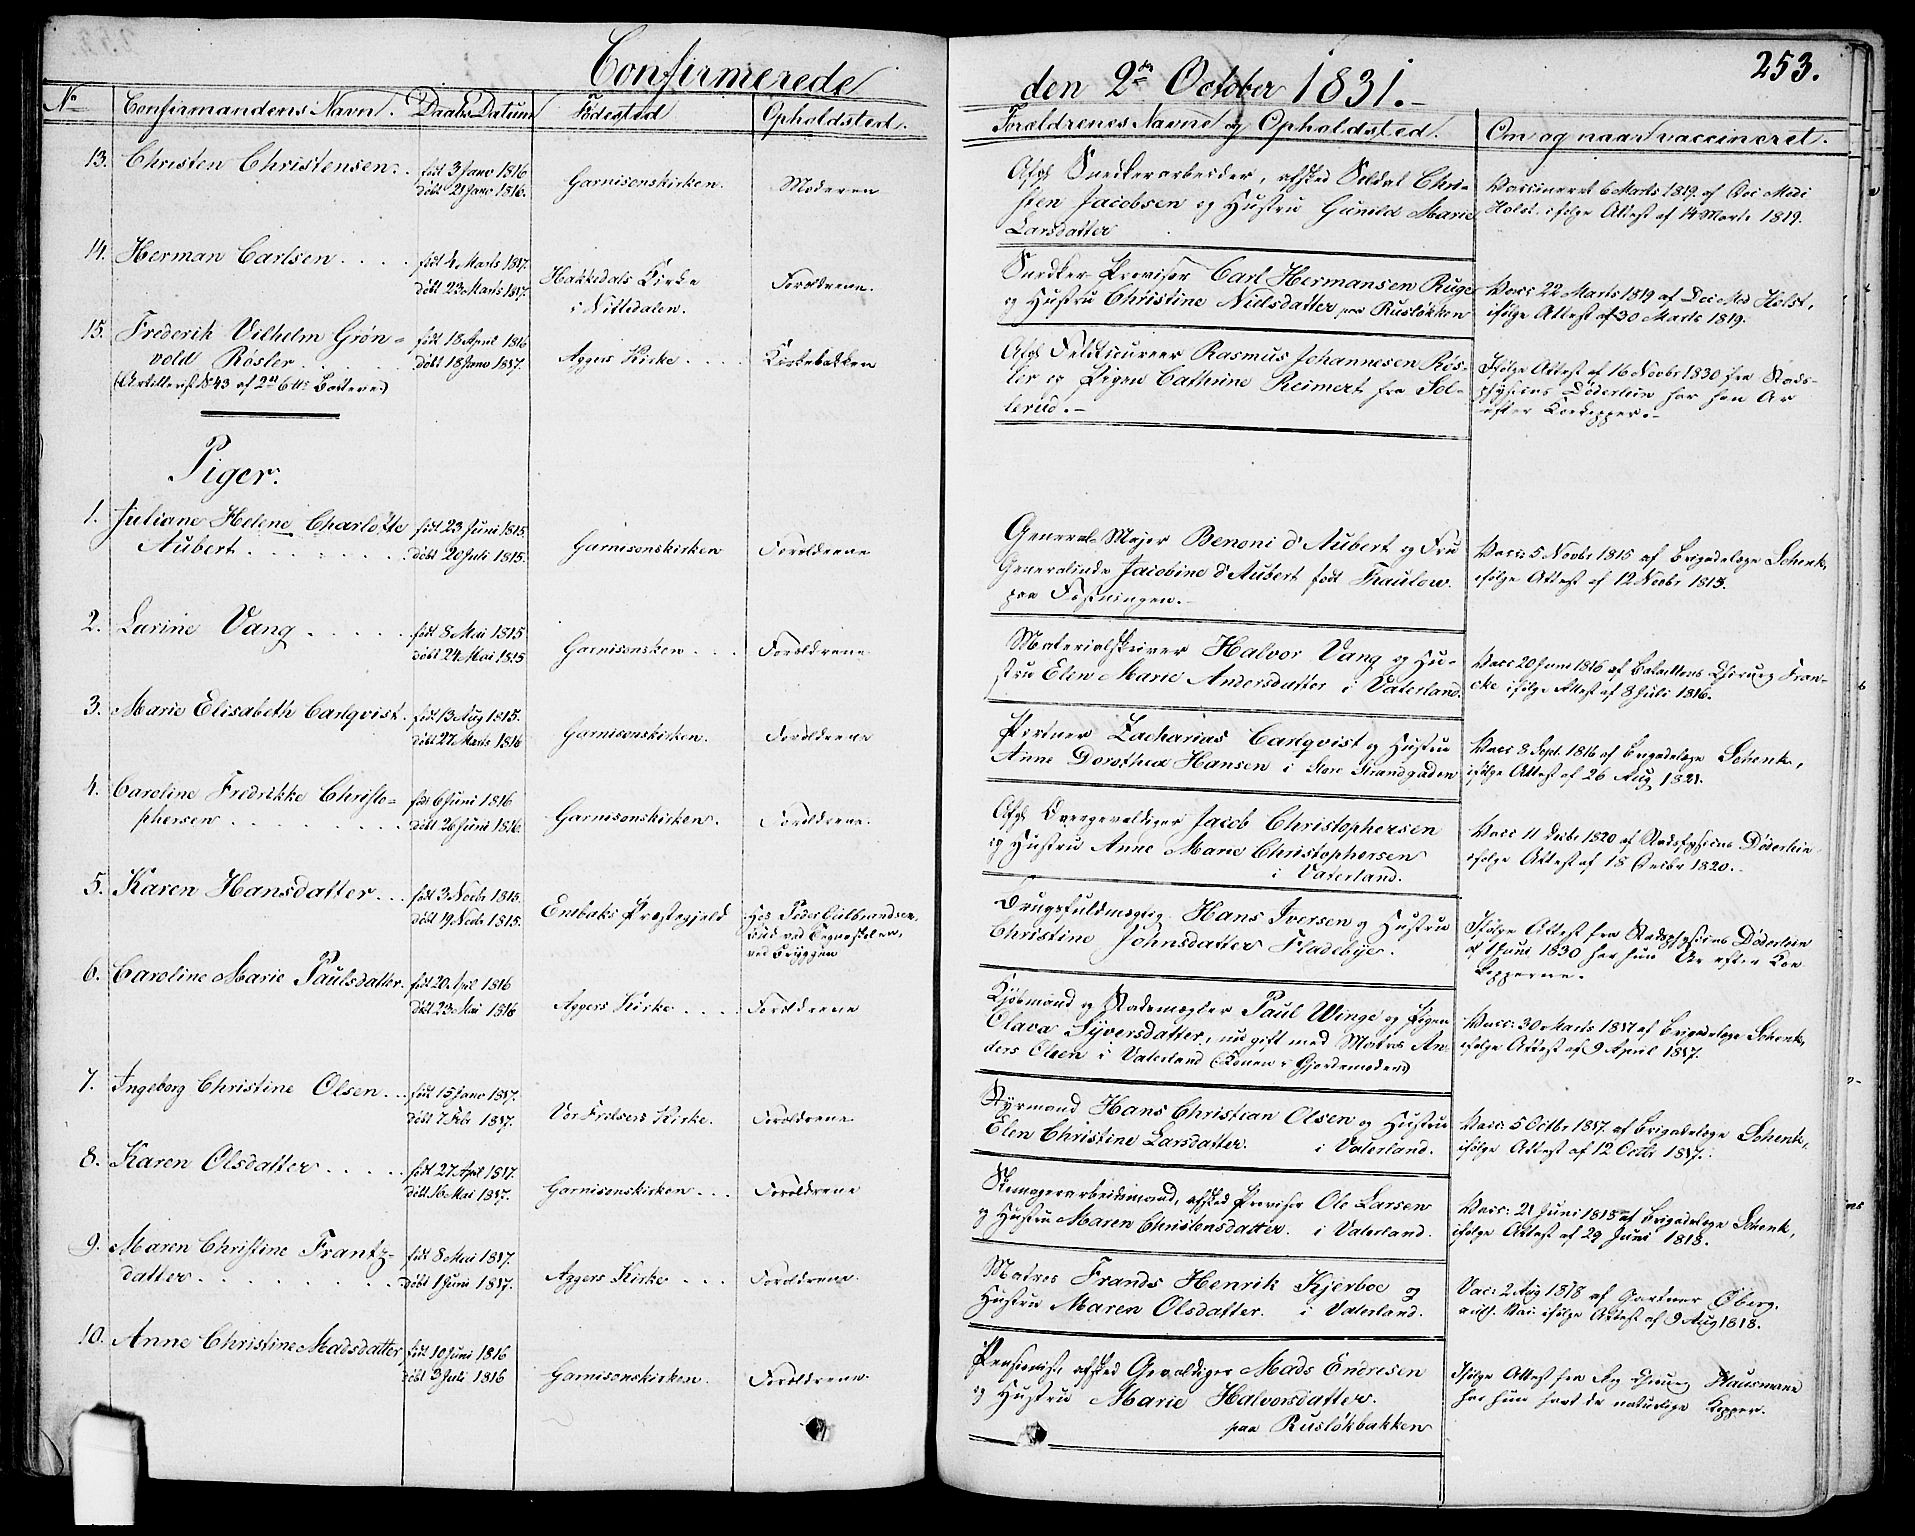 253.
Confirmerede den 2den October 1831.
No Confirmandens Navn. Daabs Datum Fødested Opholdsted. Forældrenes Navne og Opholdsted. Om og naar vaccineret.
13. Christen Christensen. født 3 Janv 1816
døbt 21 Janv 1816. Garnisonskirken. Moderen
Afgl Snedkerarbeider, afsked Soldat Chri-
sten Jacobsen og Hustru Gunild Marie
Larsdatter
Vaccineret 6 Marts 1819 af Doc Medi
Holst. ifølge Attest af 14 Marts 1819.
14. Herman Carlsen . . . . født 4 Marts 1817.
døbt 23 Marts 1817. Hakkedals Kirke
i Nittedalen. Forældrene.
Snedker Provisor Carl Hermansen Ruge
og Hustru Christine Nielsdatter paa Rusløkken
Vacc 22 Marts 1819 af Doc Med Holst,
ifølge Attest af 30 Marts 1819.
15. Frederik Vilhelm Grøn-
vold Røsler . . . . .
(Artillerist No 43 af 2det 6 lbs Batterie)
født 18 April 1816
døbt 18 Janv 1817. Aggers Kirke . . . . Kirkebakken
Afgl Feldtscureer Rasmus Johannesen Røs-
ler og Pigen Cathrine Reimert fra Sol-
lerud.-
Ifølge Attest af 16 Novbr 1830 fra Stads-
physicus Døderlein har han Ar
efter Kokopper.-
Piger.
1. Juliane Helene Charlotte
Aubert . . . . . . .
født 23 Juni 1815.
døbt 20 Juli 1815. Garnisonskirken Forældrene
General-Major Benoni d'Aubert og Fru
Generalinde Jacobine d'Aubert født Thaulow
paa Fæstningen.-
Vacc: 5 Novbr 1815 af Brigadelæge Schenk,
ifølge Attest af 12 Novbr 1815.
2. Larine Vang . . . . . født 8 Mai 1815
døbt 24 Mai 1815 Garnisonsken . . . Forældrene
Materialskriver Halvor Vang og Hu-
stru Elen Marie Andersdatter i Vaterland.
Vacc 20 Juni 1816 af Bataillons Chirurg Fran-
cke ifølge Attest af 8 Juli 1816.
3. Marie Elisabeth Carlqvist. født 13 Aug 1815.
døbt 27 Marts 1816 Garnisonskirken. Forældrene
Pistner Zacharias Carlqvist og Hustru
Anne Dorothea Hansen i Store Strandgaden
Vacc 8 Sept. 1816 af Brigadelæge Schenk,
ifølge Attest af 26 Aug 1821.
4. Caroline Fredrikke Christo-
phersen . . . . . . . .
født 6 Juni 1816
døbt 26 Juni 1816. Garnisonskirken. Forældrene.
Afgl Jacob Christophersen
og Hustru Anne Marie Christophersen
i Vaterland.
Vacc 11 Decbr 1820 af Stadsphysicus Døderlein
ifølge Attest af 18 Decbr 1820.
5. Karen Hansdatter . . . født 3 Novbr 1815.
døbt 19 Novbr 1815. Enebaks Præstegjeld Hos Peder Gulbrandsen
ved
ved Bryggen
Brugsfuldmægtig Hans Iversen og Hustru
Christine Johnsdatter Fladebye.
Ifølge Attest fra Stadsphysicus Døderlein
af 1830 har hun Ar efter Koe
kopperne.
6. Caroline Marie Paulsdatter. født 20 April 1816
døbt 23 Mai 1816 Aggers Kirke . . . . Forældrene
Kjøbmand og Stadsmægler Paul Winge og Pigen
Olava Syversdatter, nu gift med Matros An-
ders Olsen i Vaterland (Konen er Gjordemoder)
Vacc: 30 Marts 1817 af Brigadelæge Schenk,
ifølge Attest af 9 April 1817.
7. Ingeborg Christine Olsen . . født 15 Janv 1817.
døbt 7 Febr 1817. Vor Frelsers Kirke. Forældrene
Styrmand Hans Christian Olsen og Hustru
Elen Christine Larsdatter. i Vaterland.
Vacc: 5 Octbr 1817. af Brigadelæge Schenk,
ifølge Attest af 12 Octbr 1817.
8. Karen Olsdatter . . . . . født 27 April 1817.
døbt 16 Mai 1817. Garnisonskirken . . . Forældrene
Skomagerarbeidsmand, afsked Provisor Ole Larsen
og Hustru Maren Christensdatter. i Vaterland.
Vacc: 21 Juni 1818 af Brigadelæge Schenk,
ifølge Attest af 29 Juni 1818.
9. Maren Christine Frantz-
datter . . . . . . . .
født 8 Mai 1817.
døbt 1 Juni 1817. Aggers Kirke . . . Forældrene.
Matros Frands Henrik Kjerboe og
Hustru Maren Olsdatter. i Vaterland.
Vac: 2 Aug 1818 af Gartner Øberg.
auth. Vac: ifølge Attest af 9 Aug 1818.
10. Anne Christine Madsdatter født 10 Juni 1816
døbt 3 Juli 1816 Garnisonskirken. Forældrene.
Pensionist afsked Gevaldiger Mads Endresen
og Hustru Marie Halvorsdatter.
paa Rusløkbakken
Ifølge Attest fra Reg Chirurg
har hun havt de naturlige Kopper.